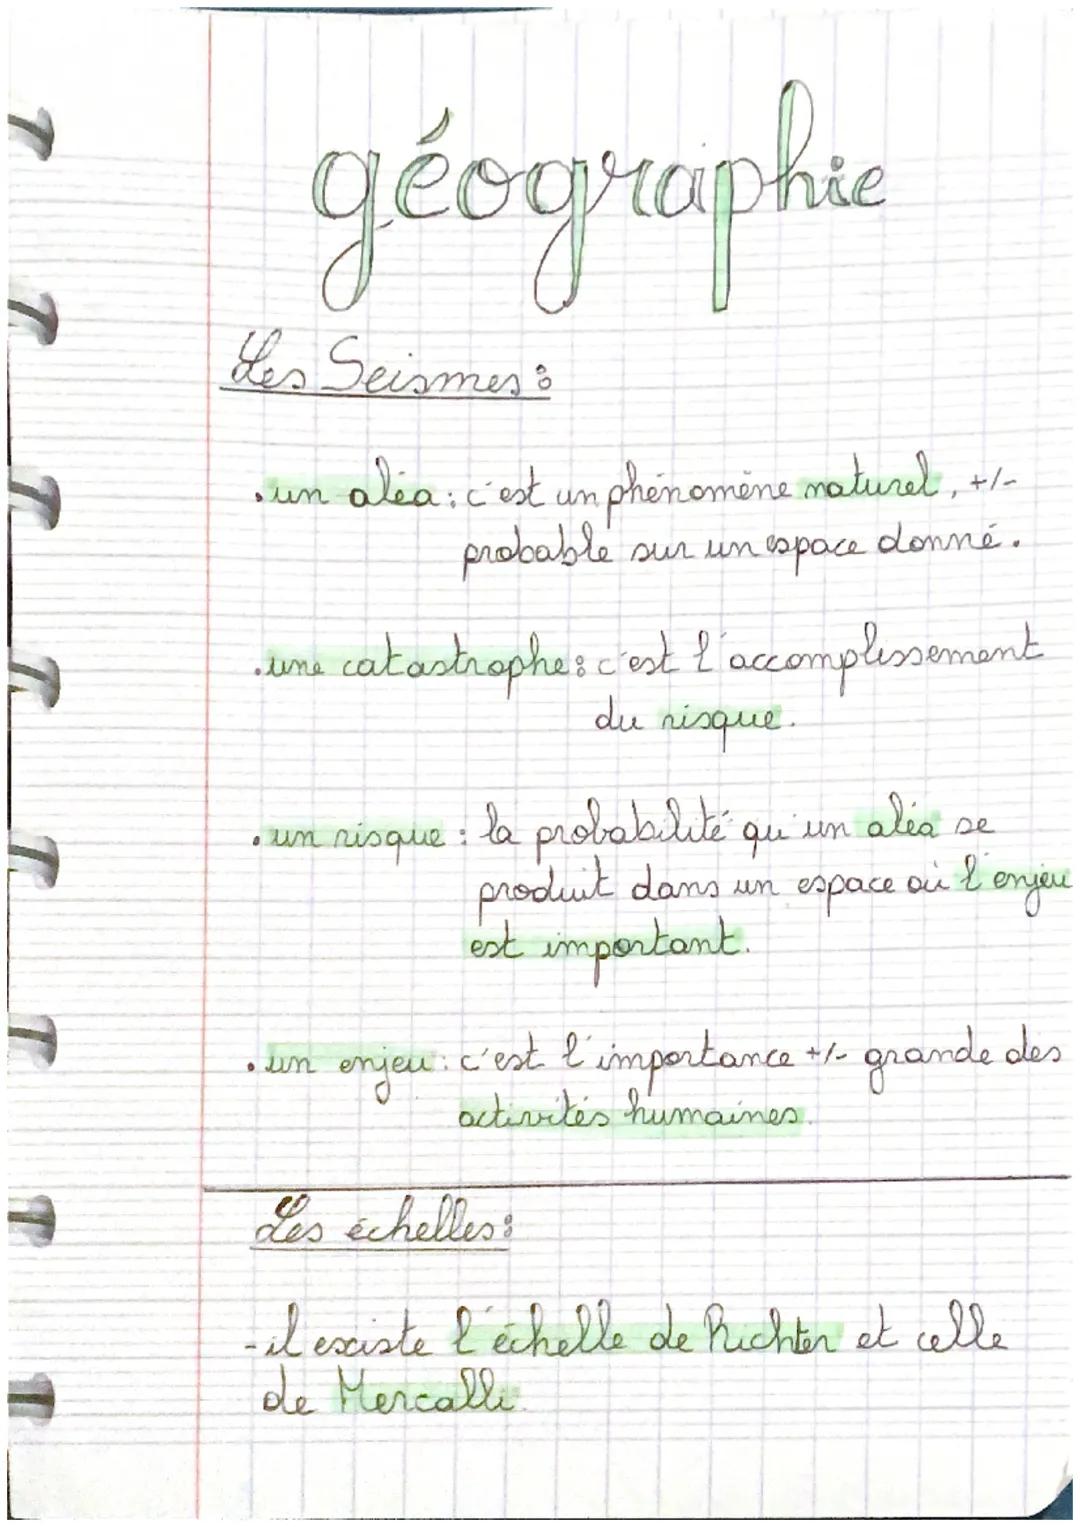 géographie
Les Seismes :
• un aléa : c'est un phénomène naturel, +/-
probable sur un espace donné.
• une catastrophe : c'est l'accomplissement
du risque.
• un risque : la probabilité qu'un aléa se
produit dans un espace où l'enjeu
est important.
• un enjeu : c'est l'importance +/- grande des
activités humaines.
Les échelles :
- il existe l'échelle de Richter et celle
de Mercalli